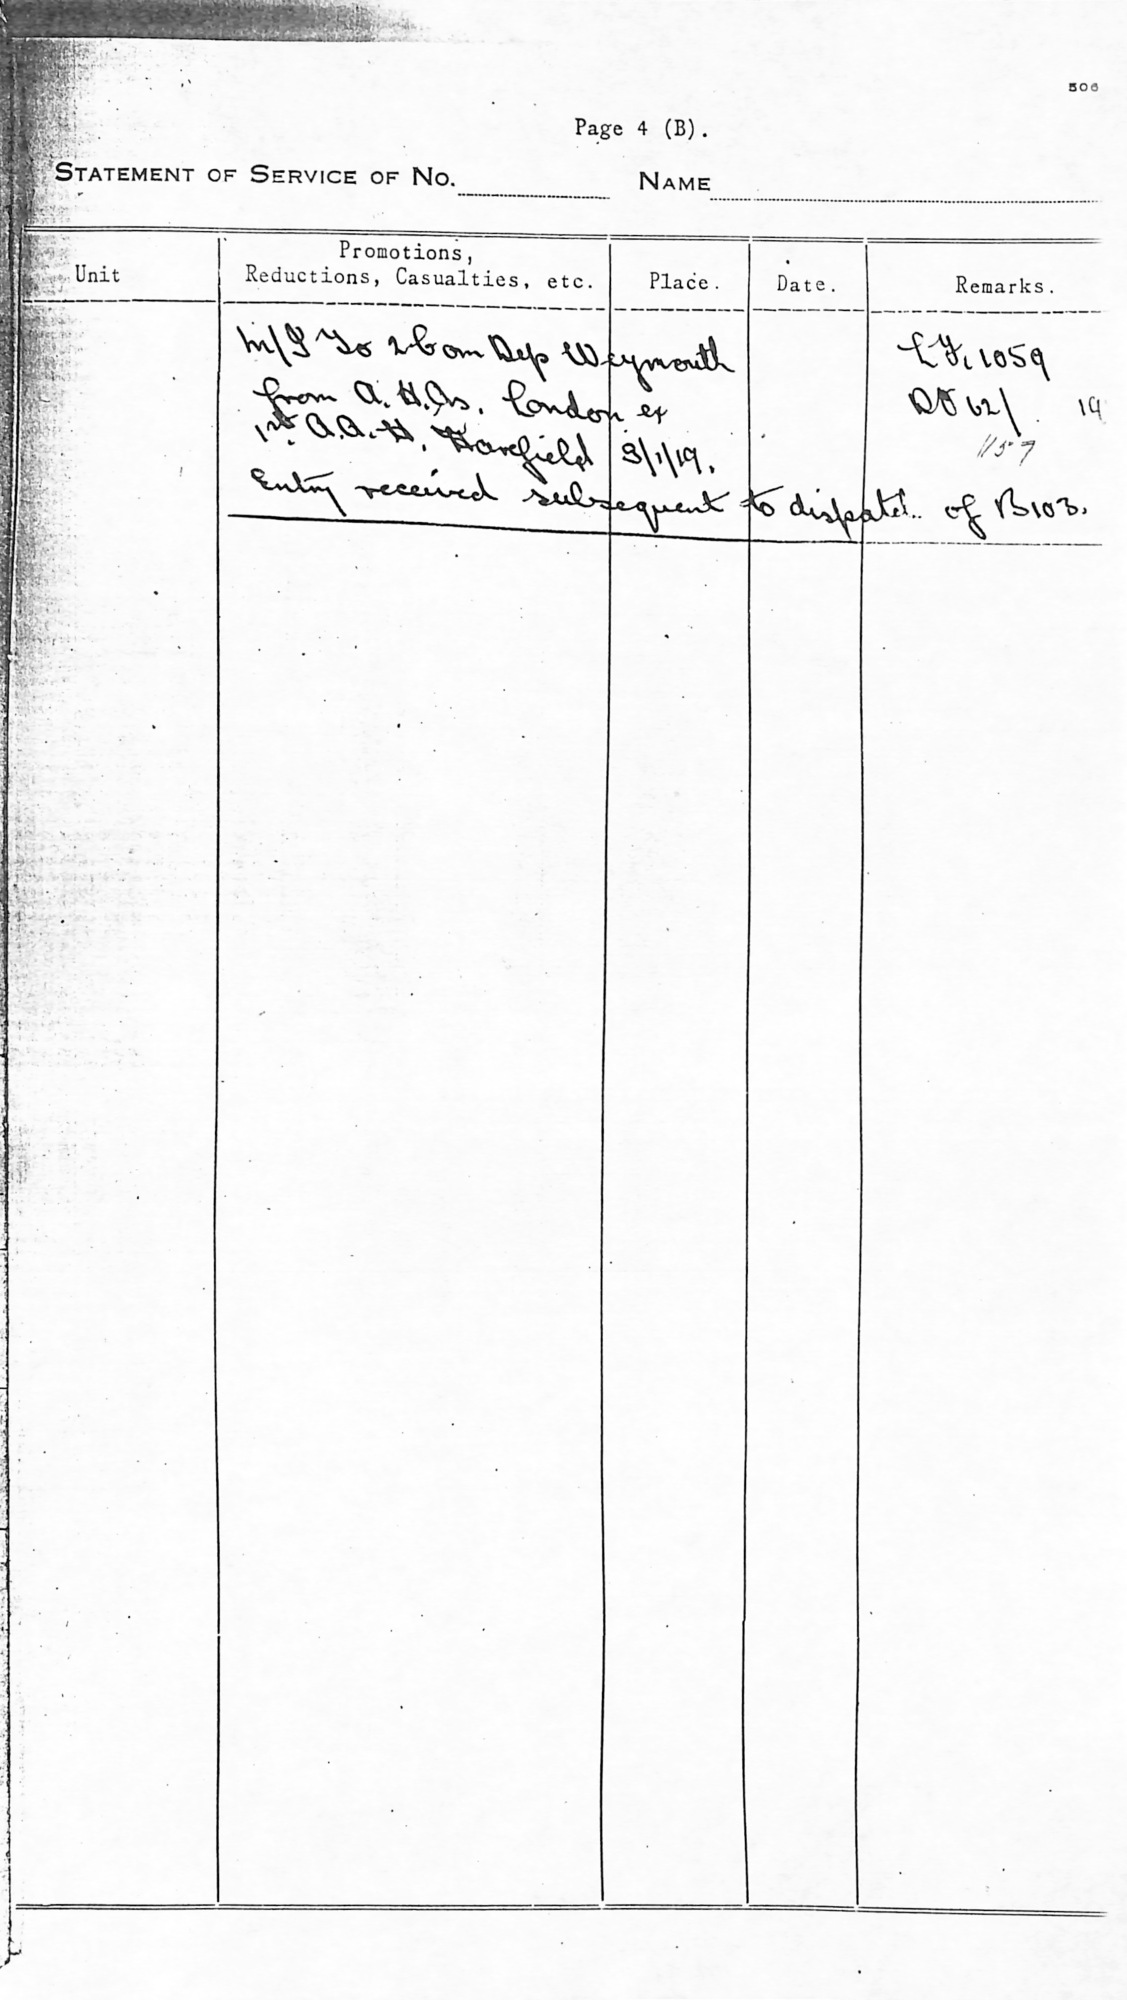 506
Page 4 (B).
STATEMENT OF SERVICE OF NO. NAME
Unit
Promotions,
Reductions, Casualties, etc.
Place.
Date.
Remarks.
M/I To 2 Com Dep Weymouth
from A.H.Qs. London ex
1st A.A.H. Harefield 3/1/19.
Entry received subsequent to dispatch of B103.
1059
DO 62/ 19
1157